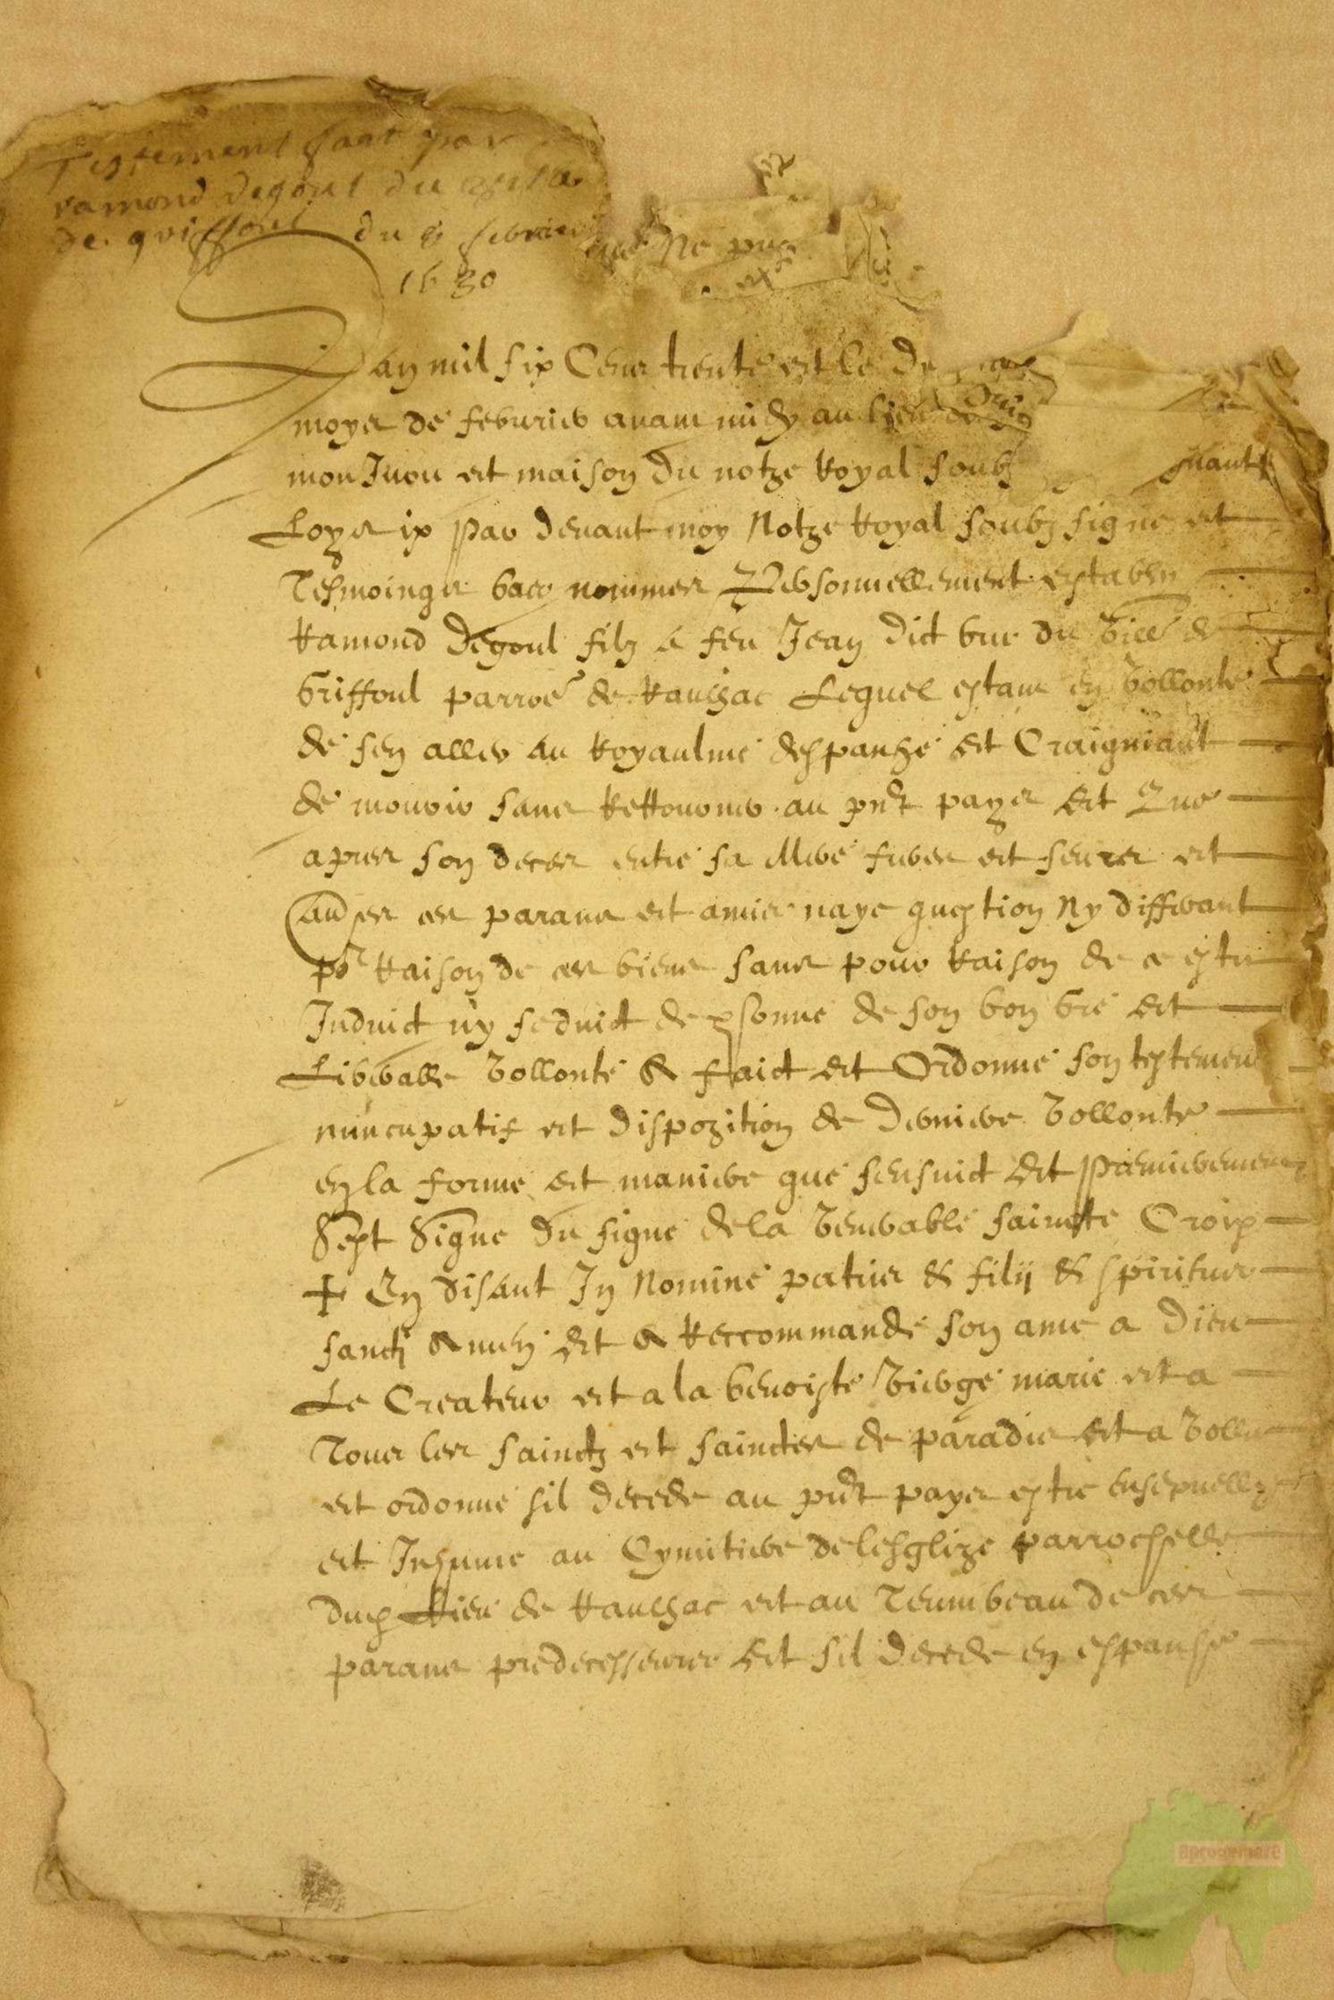 Testement faict par
ramond degoul du
de griffoul du 8 febvrier
1630
Lan mil six Cens trente et le
moys de febvrier avant midy au lieu de
et maison du notre Royal soubz
Loys ix par devant moy Notre Royal soubz signe et
Tesmoings bas nommes Personnellement establi
Ramond degoul filz a feu Jean dict du de
Griffoul parroe de Raulhac Lequel estant en Vollonte
de sen aller au Royaulme despanhe Et Craigniant
de mourir sans Rettourner au pnt pays Et Que
apres son deces entre sa Mere freres et seurs et
au^es ces parans et amis naye question Ny differant
pr Raison de ces biens sans pour Raison de ce estre
Induict ny seduict de psonne de son bon Gre Et
Liberalle Vollonte A faict et Ordonne son testement
nuncupatif et dispozition de derniere Vollonte
en la forme et maniere que sensuict Et Premierement
Sest Signe du signe de la Venerable saincte Croix
+ En disant In Nomine patris & filij & spiritus
sancti Amen Et A Reccommande son ame a Dieu
Le Createur et a la benoiste Vierge marie et a
Tous les sainctz et sainctes de paradis et a Vollu
et ordonne sil decede au pnt pays estre ensepvelly
et Inhume au Cymitiere de lesglize parrochelle
dud Lieu de Raulhac et au Teumbeau de ces
parans predecesseurs Et sil decede en espanhe